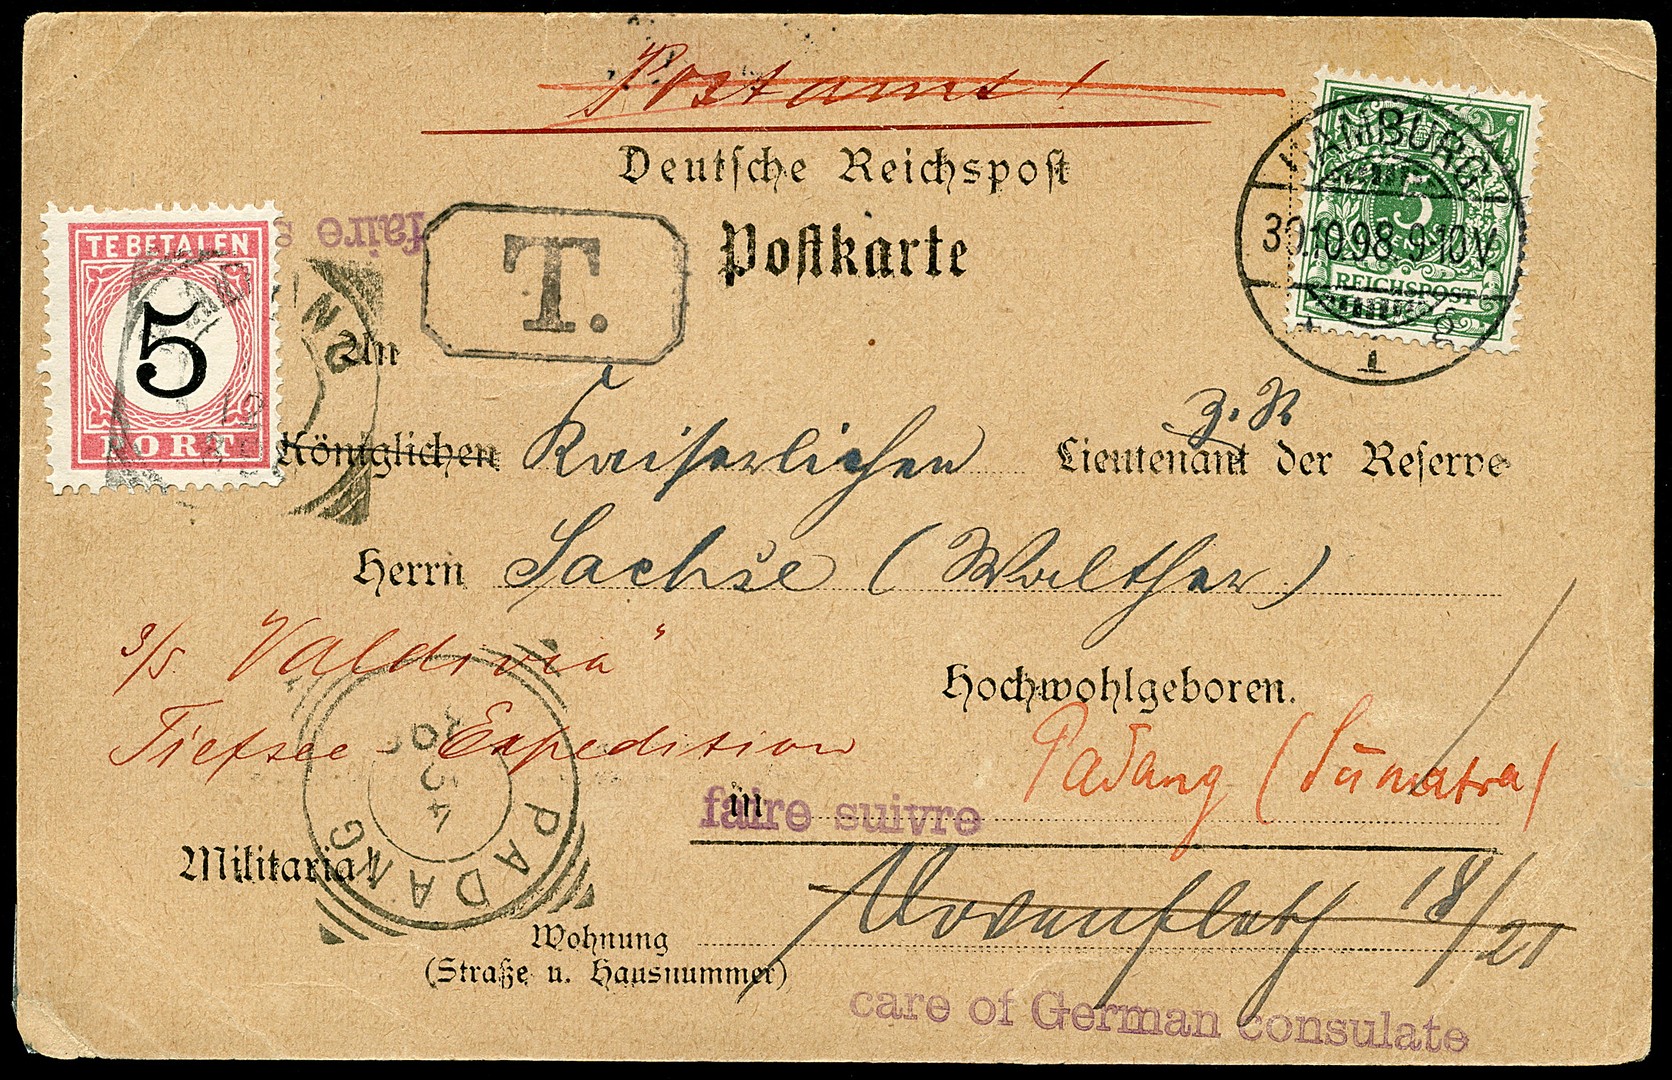 Postamt!
Deutsche Reichspost
Postkarte
HAMBURG
30.10.98.9-10V
1
5
REICHSPOST
TE BETALEN
5
PORT
faire s
T.
An
Königlichen Kaiserlichen Lieutenant der Reserve
z. R
Herrn Sachse (Walther)
s/s. "Valdivia"
Hochwohlgeboren.
Tiefsee-Expedition
Padang (Sumatra)
in
faire suivre
PADANG
Militaria!
18/21
Wohnung
(Straße u. Hausnummer)
care of German consulate